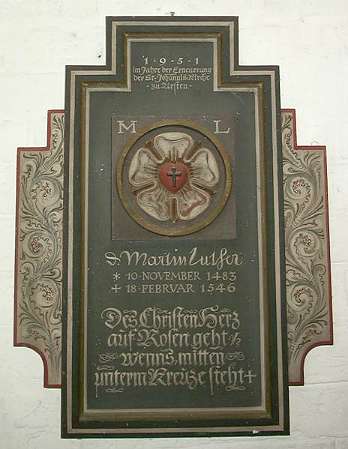 1·9·5·1
im Jahre der Erneuerung
der St. Johannis-Kirche
zu Uelsen
M L
D Martin Luther
* 10·NOVEMBER 1483
+ 18·FEBRVAR 1546
Des Christen Herz
auf Rosen geht
wenns mitten
unterm Kreuze steht+